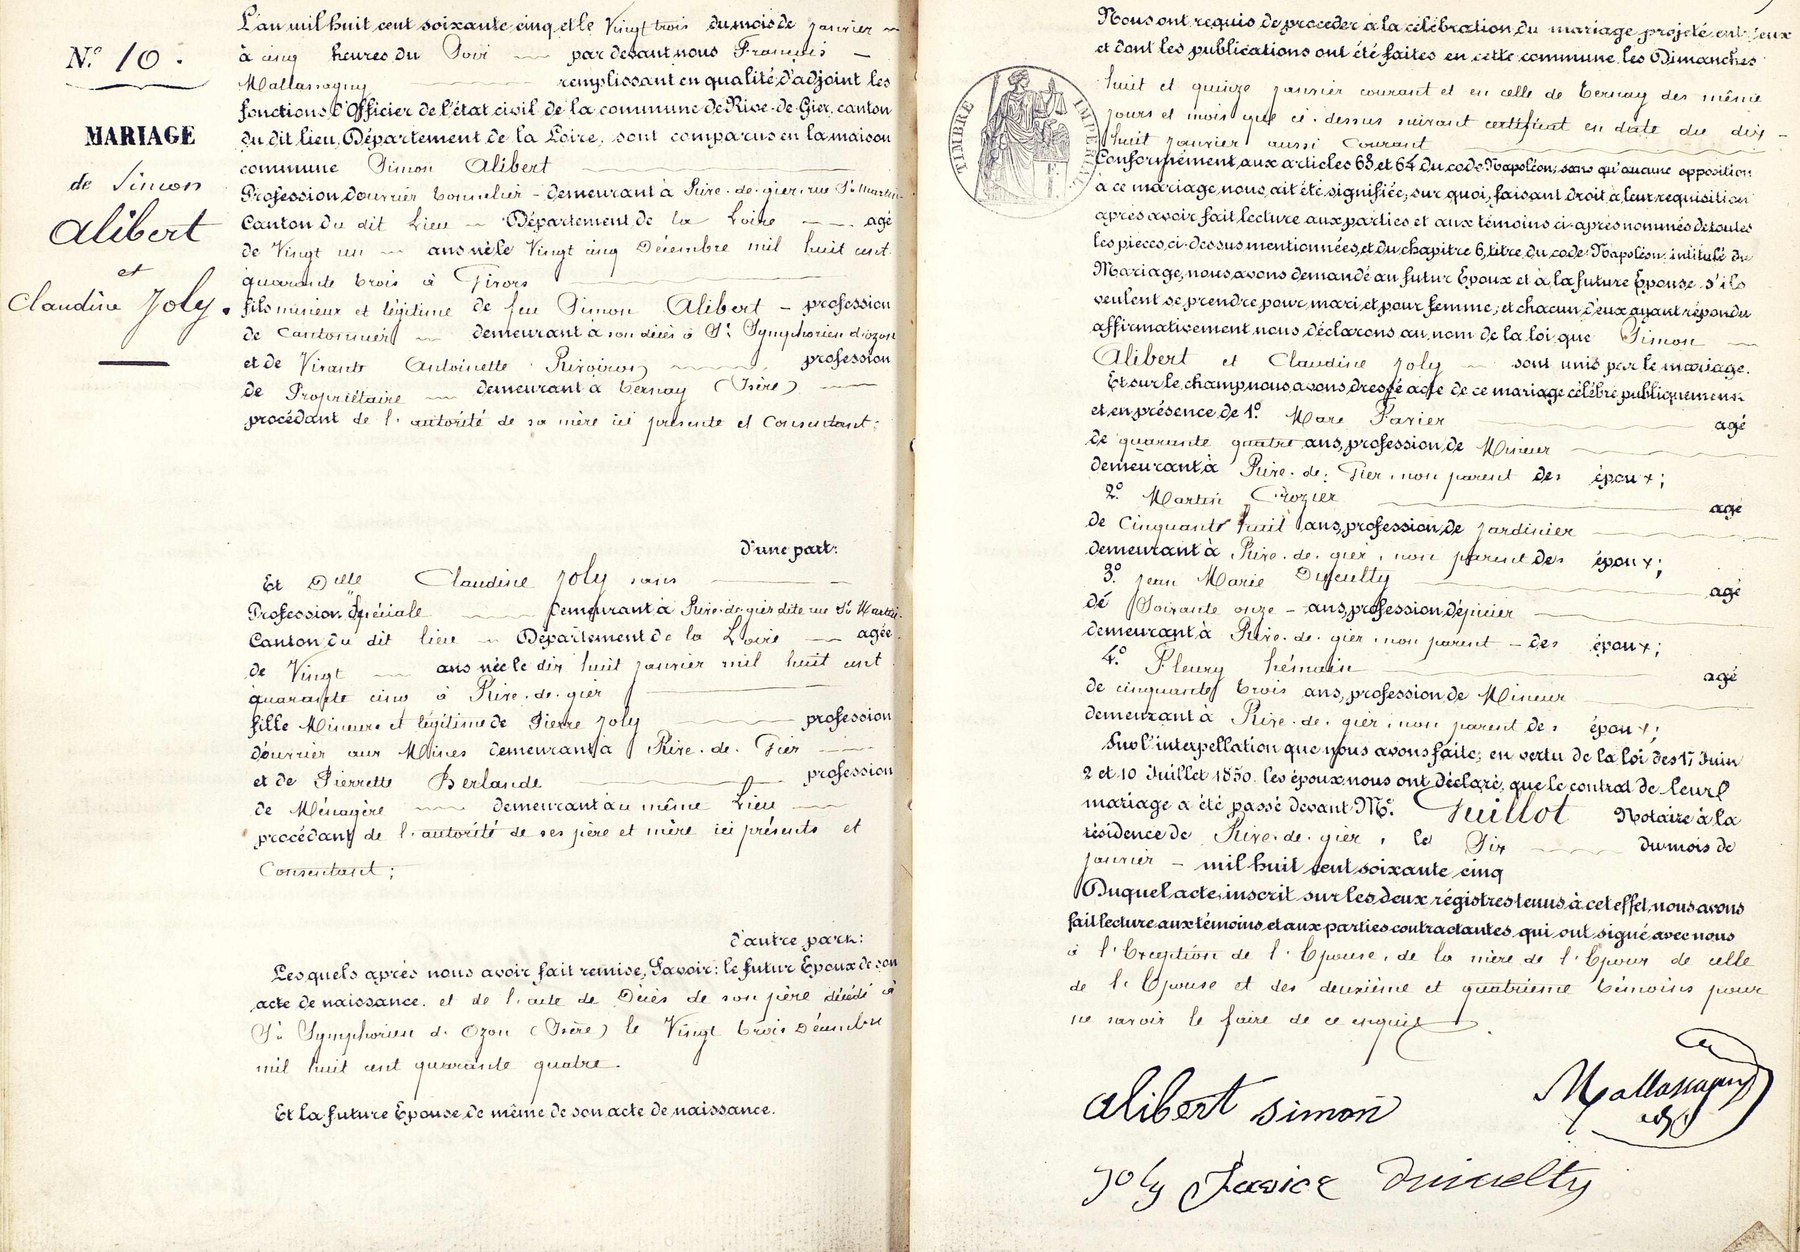 N.º 10.
MARIAGE
de Simon
Alibert
et
Claudine Joly.
L'an mil huit cent soixante cinq et le Vingt trois du mois de janvier
à cinq heures du Soir par devant nous François
Mallassagny remplissant en qualité d'adjoint les
fonctions d'Officier de l'état civil de la commune de Rive-de-Gier, canton
du dit lieu, Département de la Loire, sont comparus en la maison
commune Simon Alibert
Profession d'ouvrier tonnelier - demeurant à Rive-de-gier, rue St Martin
Canton du dit Lieu - Département de la Loire - agé
de Vingt un ans né le Vingt cinq Décembre mil huit cent
quarante trois à Givors
fils mineur et légitime de feu Simon Alibert - profession
de Cantonnier demeurant à son décès à St Symphorien d'ozon
et de Vivante Antoinette profession
de Propriétaire demeurant à Ternay (Isère)
procédant de l'autorité de sa mère ici présente et Consentant;
d'une part:
Et Delle Claudine Joly sans
Profession Spéciale demeurant à Rive-de-gier dite rue St Martin
Canton du dit lieu - Département de la Loire agée
de Vingt ans née le dix huit janvier mil huit cent
quarante cinq à Rive-de-gier
fille Mineure et légitime de Pierre Joly profession
d'ouvrier aux Mines demeurant à Rive-de-Gier
et de Pierrette Berlande profession
de Ménagère demeurant au même Lieu
procédant de l'autorité de ses père et mère ici présents et
Consentant;
d'autre part:
Lesquels après nous avoir fait remise, Savoir: le futur Epoux de son
acte de naissance. et de l'acte de Décès de son père décédé à
St Symphorien d'Ozon (Isère) le Vingt trois Décembre
mil huit cent quarante quatre.
Et la future Epouse de même de son acte de naissance.
Nous ont requis de procéder à la célébration du mariage projeté entr'eux
et dont les publications ont été faites en cette commune les Dimanches
huit et quinze janvier courant et en celle de Ternay des même
jours et mois que ci-dessus suivant certificat en date du dix-
huit janvier aussi Courant
TIMBRE IMPÉRIAL
Conformément aux articles 63 et 64 du code Napoléon, sans qu'aucune opposition
à ce mariage nous ait été signifiée, sur quoi, faisant droit à leur requisition
après avoir fait lecture aux parties et aux témoins ci-après nommés de toutes
les pièces ci-dessus mentionnées et du chapitre 6, titre du code Napoléon intitulé du
Mariage, nous avons demandé au futur Epoux et à la future Epouse s'ils
veulent se prendre pour mari et pour femme; et chacun d'eux ayant répondu
affirmativement nous déclarons au nom de la loi que Simon
Alibert et Claudine Joly sont unis par le mariage.
Et sur le champ nous avons dressé acte de ce mariage célébré publiquement
et en présence de 1º Marc Favier agé
de quarante quatre ans, profession de Mineur
demeurant à Rive-de-Gier, non parent des époux;
2º Martin Crozier agé
de Cinquante huit ans, profession de jardinier
demeurant à Rive-de-gier, non parent des époux;
3º Jean Marie agé
de Soixante onze - ans, profession d'épicier
demeurant à Rive-de-gier, non parent - des époux;
4º Fleury hémain agé
de cinquante trois ans, profession de Mineur
demeurant à Rive-de-gier, non parent des époux;
Sur l'interpellation que nous avons faite, en vertu de la loi des 17 Juin
2 et 10 Juillet 1850. les époux nous ont déclaré, que le contrat de leur
mariage a été passé devant Mº Guillot Notaire à la
résidence de Rive-de-gier, le Dix du mois de
janvier - mil huit cent soixante cinq
Duquel acte, inscrit sur les deux régistres tenus à cet effet, nous avons
fait lecture aux témoins et aux parties contractantes, qui ont signé avec nous
à l'Exception de l'Epouse, de la mère de l'Epoux de celle
de l'Epouse et des deuxième et quatrième témoins pour
ne savoir le faire de ce enquis.
Alibert simon Mallassagny
adj
Joly Favier